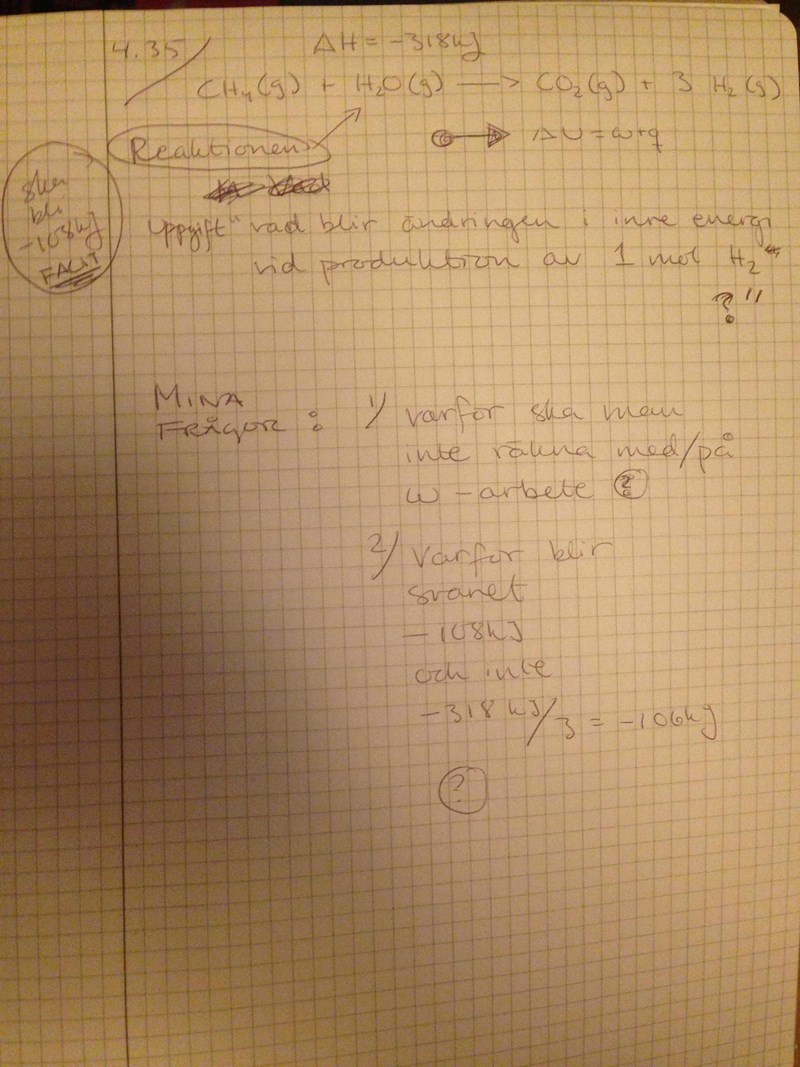 4.35
ΔH = -318kJ
CH₄(g) + H₂O(g) → CO₂(g) + 3 H₂(g)
Reaktionen
ΔU = w+q
ska
bli
-108kJ
FACIT
Uppgift "vad blir ändringen i inre energi
vid produktion av 1 mol H₂"
?"
MINA
FRÅGOR :
1) varför ska man
inte räkna med/på
w - arbete ?
2) Varför blir
svaret
- 108kJ
och inte
- 318 kJ/3 = -106kJ
?